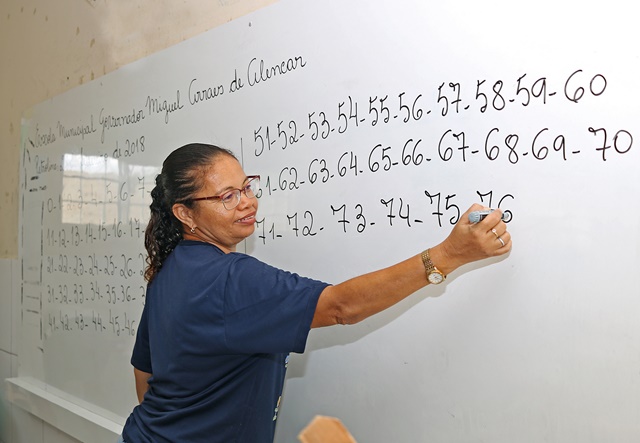 Escola Municipal Governador Miguel Arraes de Alencar
Petrolina de 2018
6-7
11-12-13-14-15-16-17-
21-22-23-24-25-26-
31-32-33-34-35-36-
41-42-43-44-45-46
51-52-53-54-55-56-57-58-59-60
61-62-63-64-65-66-67-68-69-70
71-72-73-74-75-76